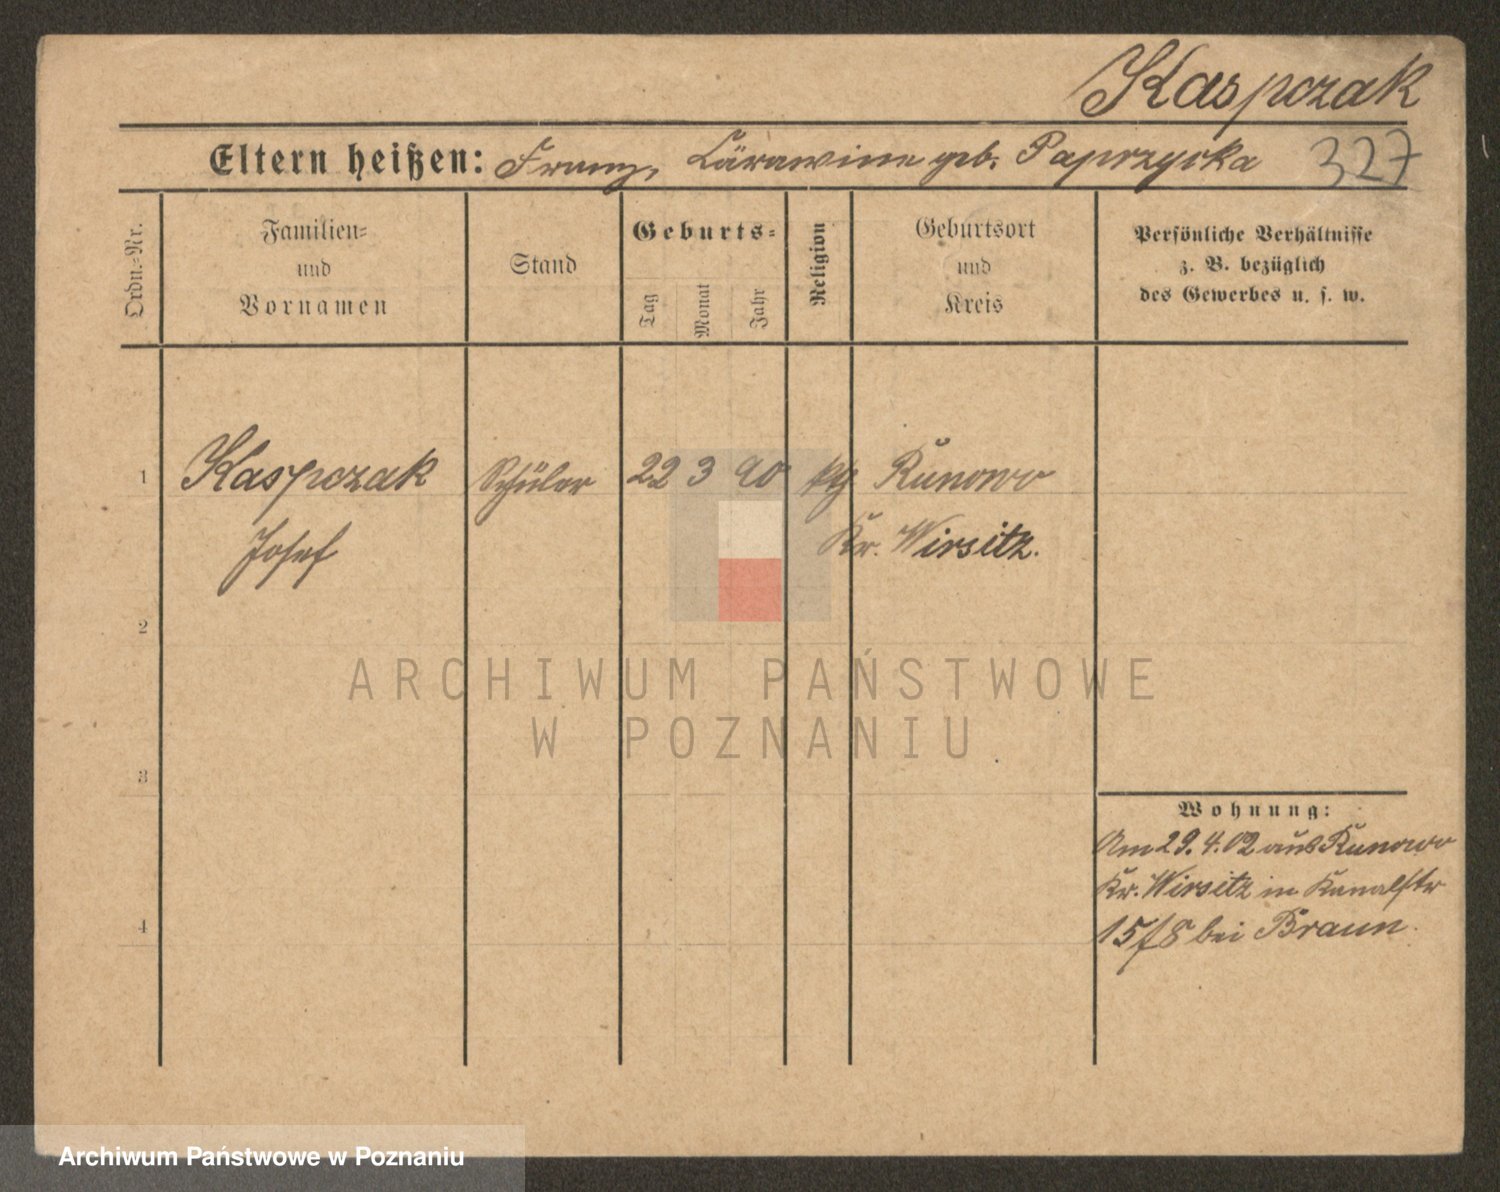 Kaspczak
Eltern heißen: Franz, geb. Paprzycka 327
Ordn.-Nr.
Familien-
und
Vornamen
Stand
Geburts-
Tag
Monat
Jahr
Religion
Geburtsort
und
Kreis
Persönliche Verhältnisse
z. B. bezüglich
des Gewerbes u. s. w.
1 Kaspczak Schüler 22 3 90 kth Runowo
Josef Kr. Wirsitz.
2
3
4
Wohnung:
Am 29.4.02 aus Runowo
Kr. Wirsitz in Kanalstr
15/8 bei Braun.
ARCHIWUM PAŃSTWOWE
W POZNANIU
Archiwum Państwowe w Poznaniu